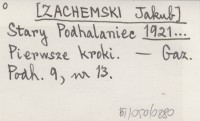 [ZACHEMSKI Jakub]
Stary Podhalaniec 1921...
Pierwsze kroki. — Gaz.
Podh. 9, nr 13.